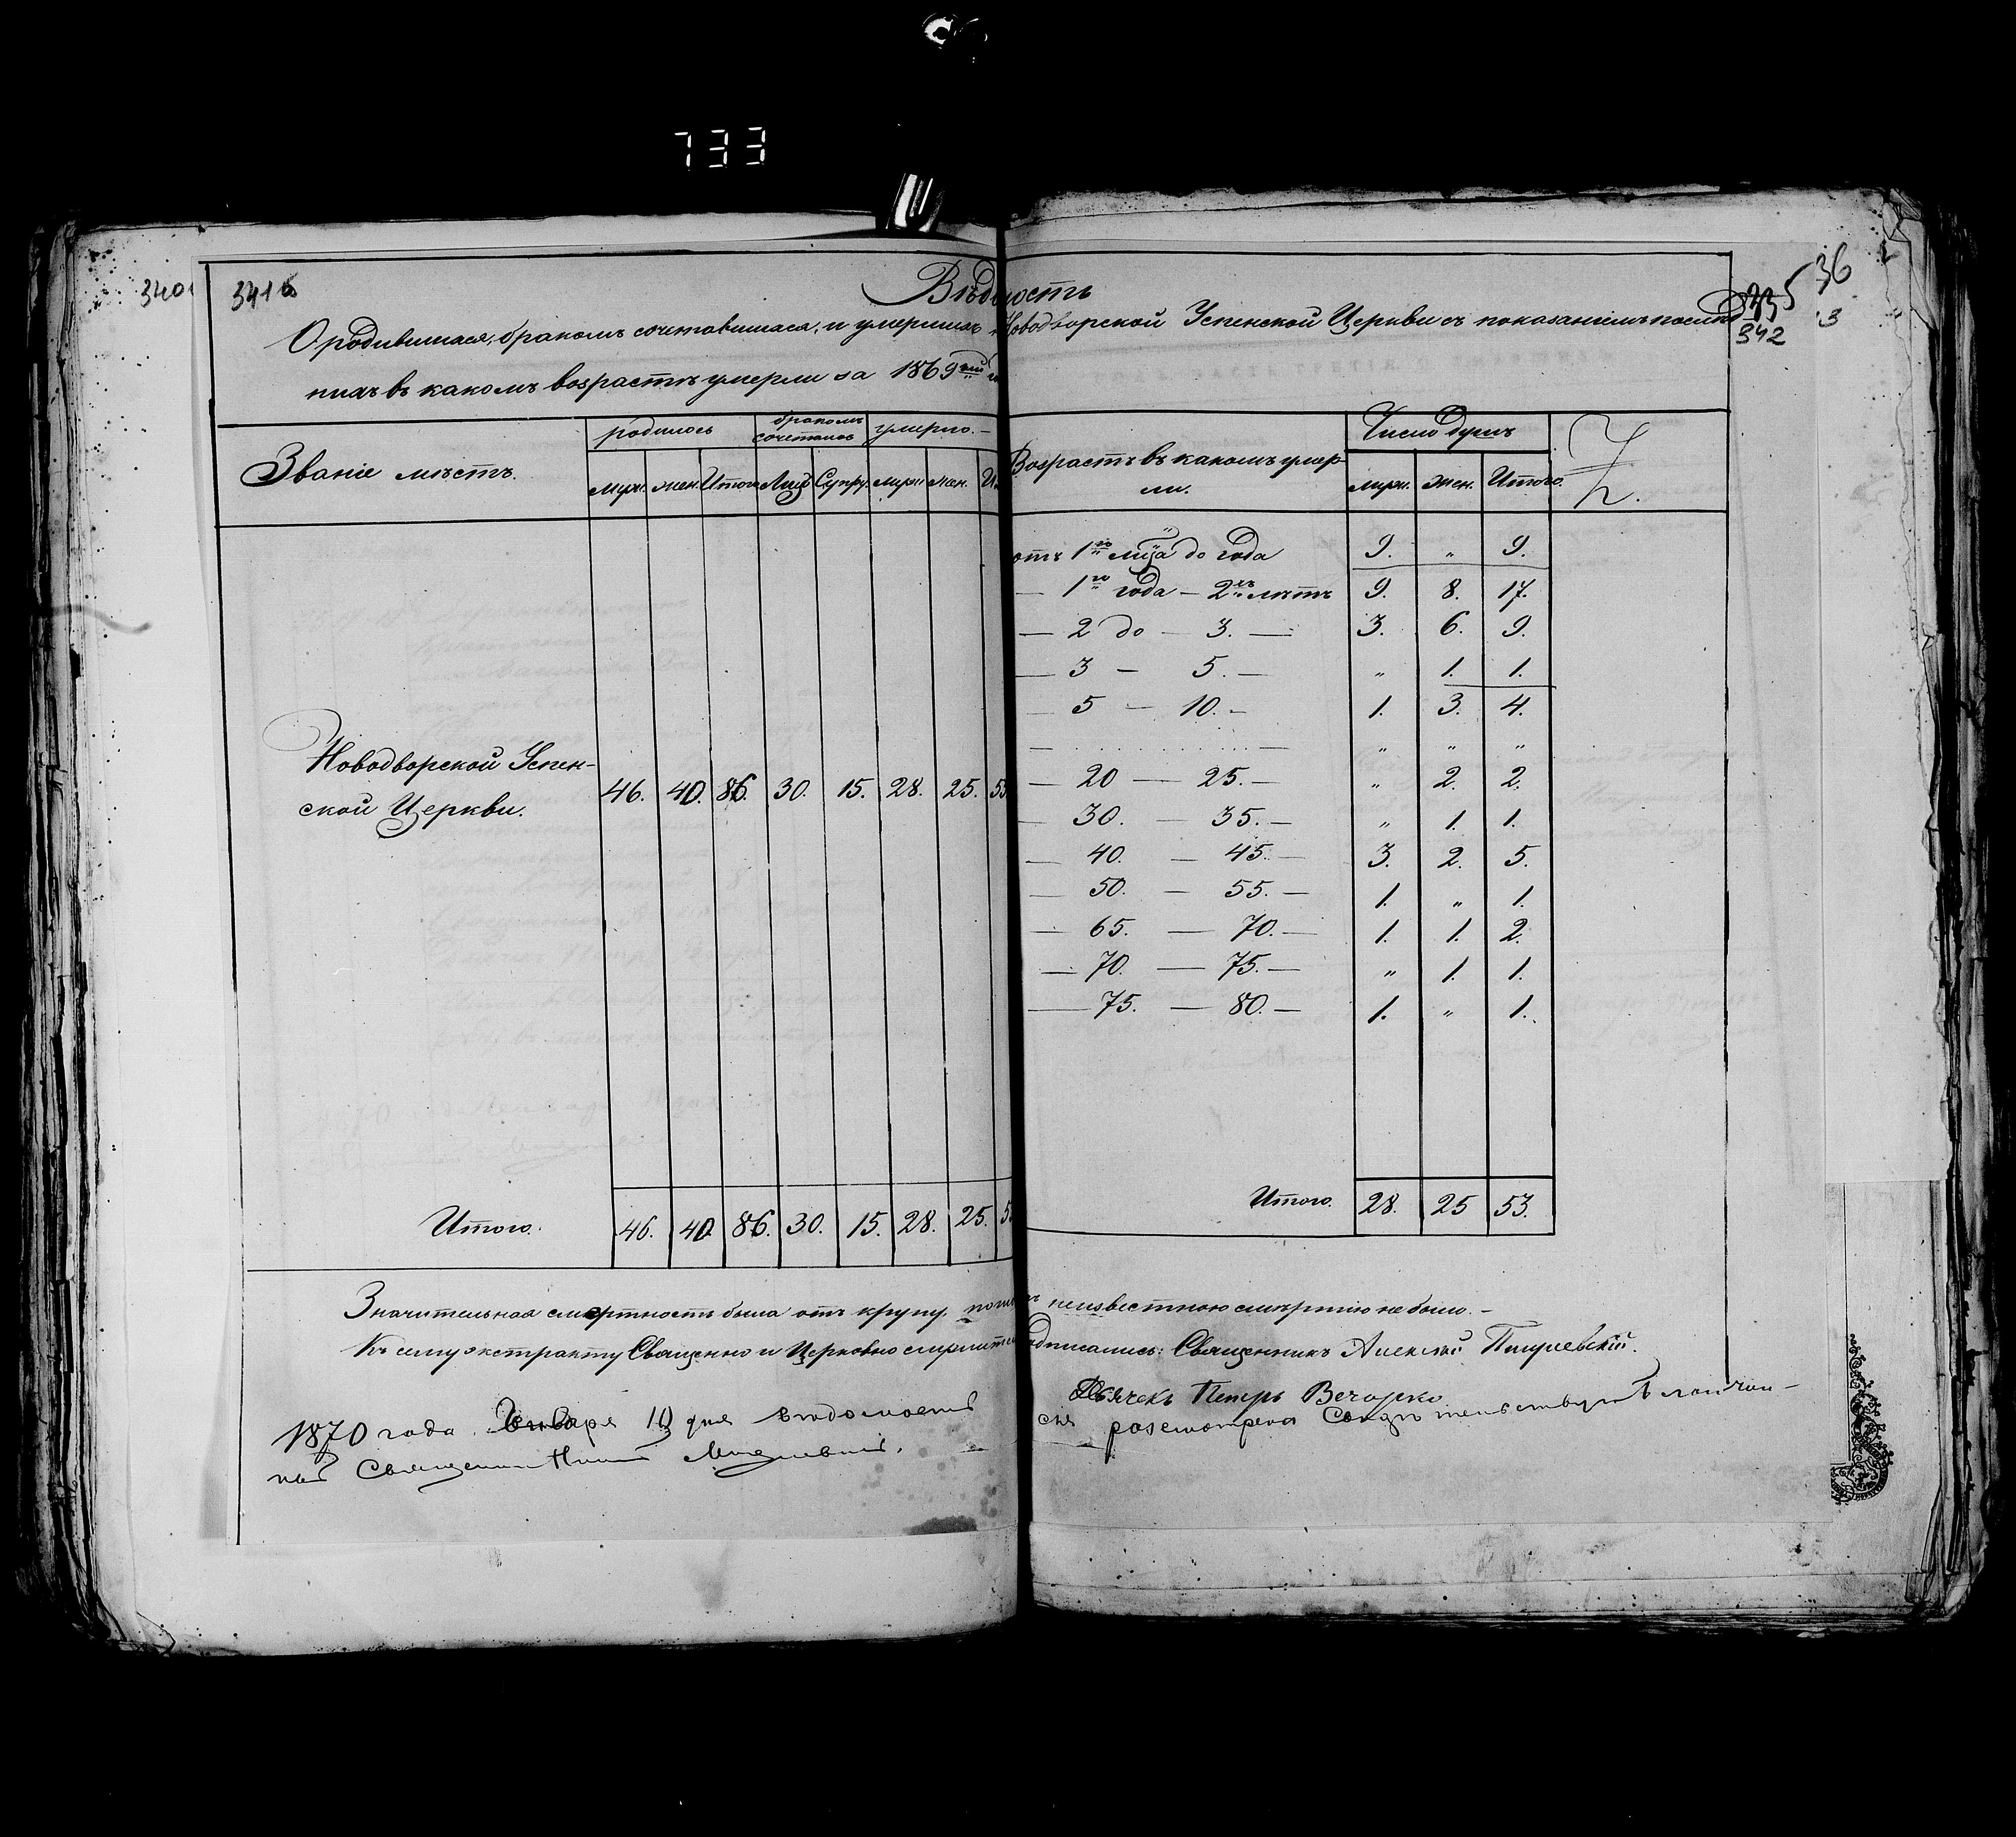 733
340
341б
36
335
342
3
Вѣдомость
О родившихся, бракомъ сочетавшихся, и умершихъ Новодворской Успенской Церкви съ показаніемъ послѣд-
нихъ въ какомъ возрастѣ умерли за 1869ый
Званіе мѣстъ.
родилось
бракомъ сочеталось
умерло.
муж. жен. Итого Лицъ Супру. муж жен.
Новодворской Успен-
ской Церкви.
46. 40. 86. 30. 15. 28. 25. 53
Итого. 46. 40 86. 30. 15. 28. 25. 53
Возрастъ въ какомъ умер-
ли.
Число душъ
муж. жен. Итого.
отъ 1го мца до года 9. „ 9.
— 1го года — 2хъ лѣтъ 9. 8. 17.
— 2 до — 3. — 3. 6. 9.
— 3 — 5. — „ 1. 1.
— 5 — 10. — 1. 3. 4.
— . . . . . . . . . . — „ „ „
— 20 — 25. — „ 2. 2.
— 30. — 35. — „ 1. 1.
— 40. — 45. — 3. 2. 5.
— 50. — 55. — 1. „ 1.
— 65. — 70. — 1. 1. 2.
— 70. — 75. — „ 1. 1.
— 75. — 80. — 1. „ 1.
Итого. 28. 25 53.
Значительная смертность была отъ крупу неизвестною смертію не было. —
Къ сему экстракту Священно и Церковно служители подписались: Священникъ Алексѣй
Дьячекъ Петръ Вечорко
1870 года Января 10 дня вѣдомость сія разсмотрена